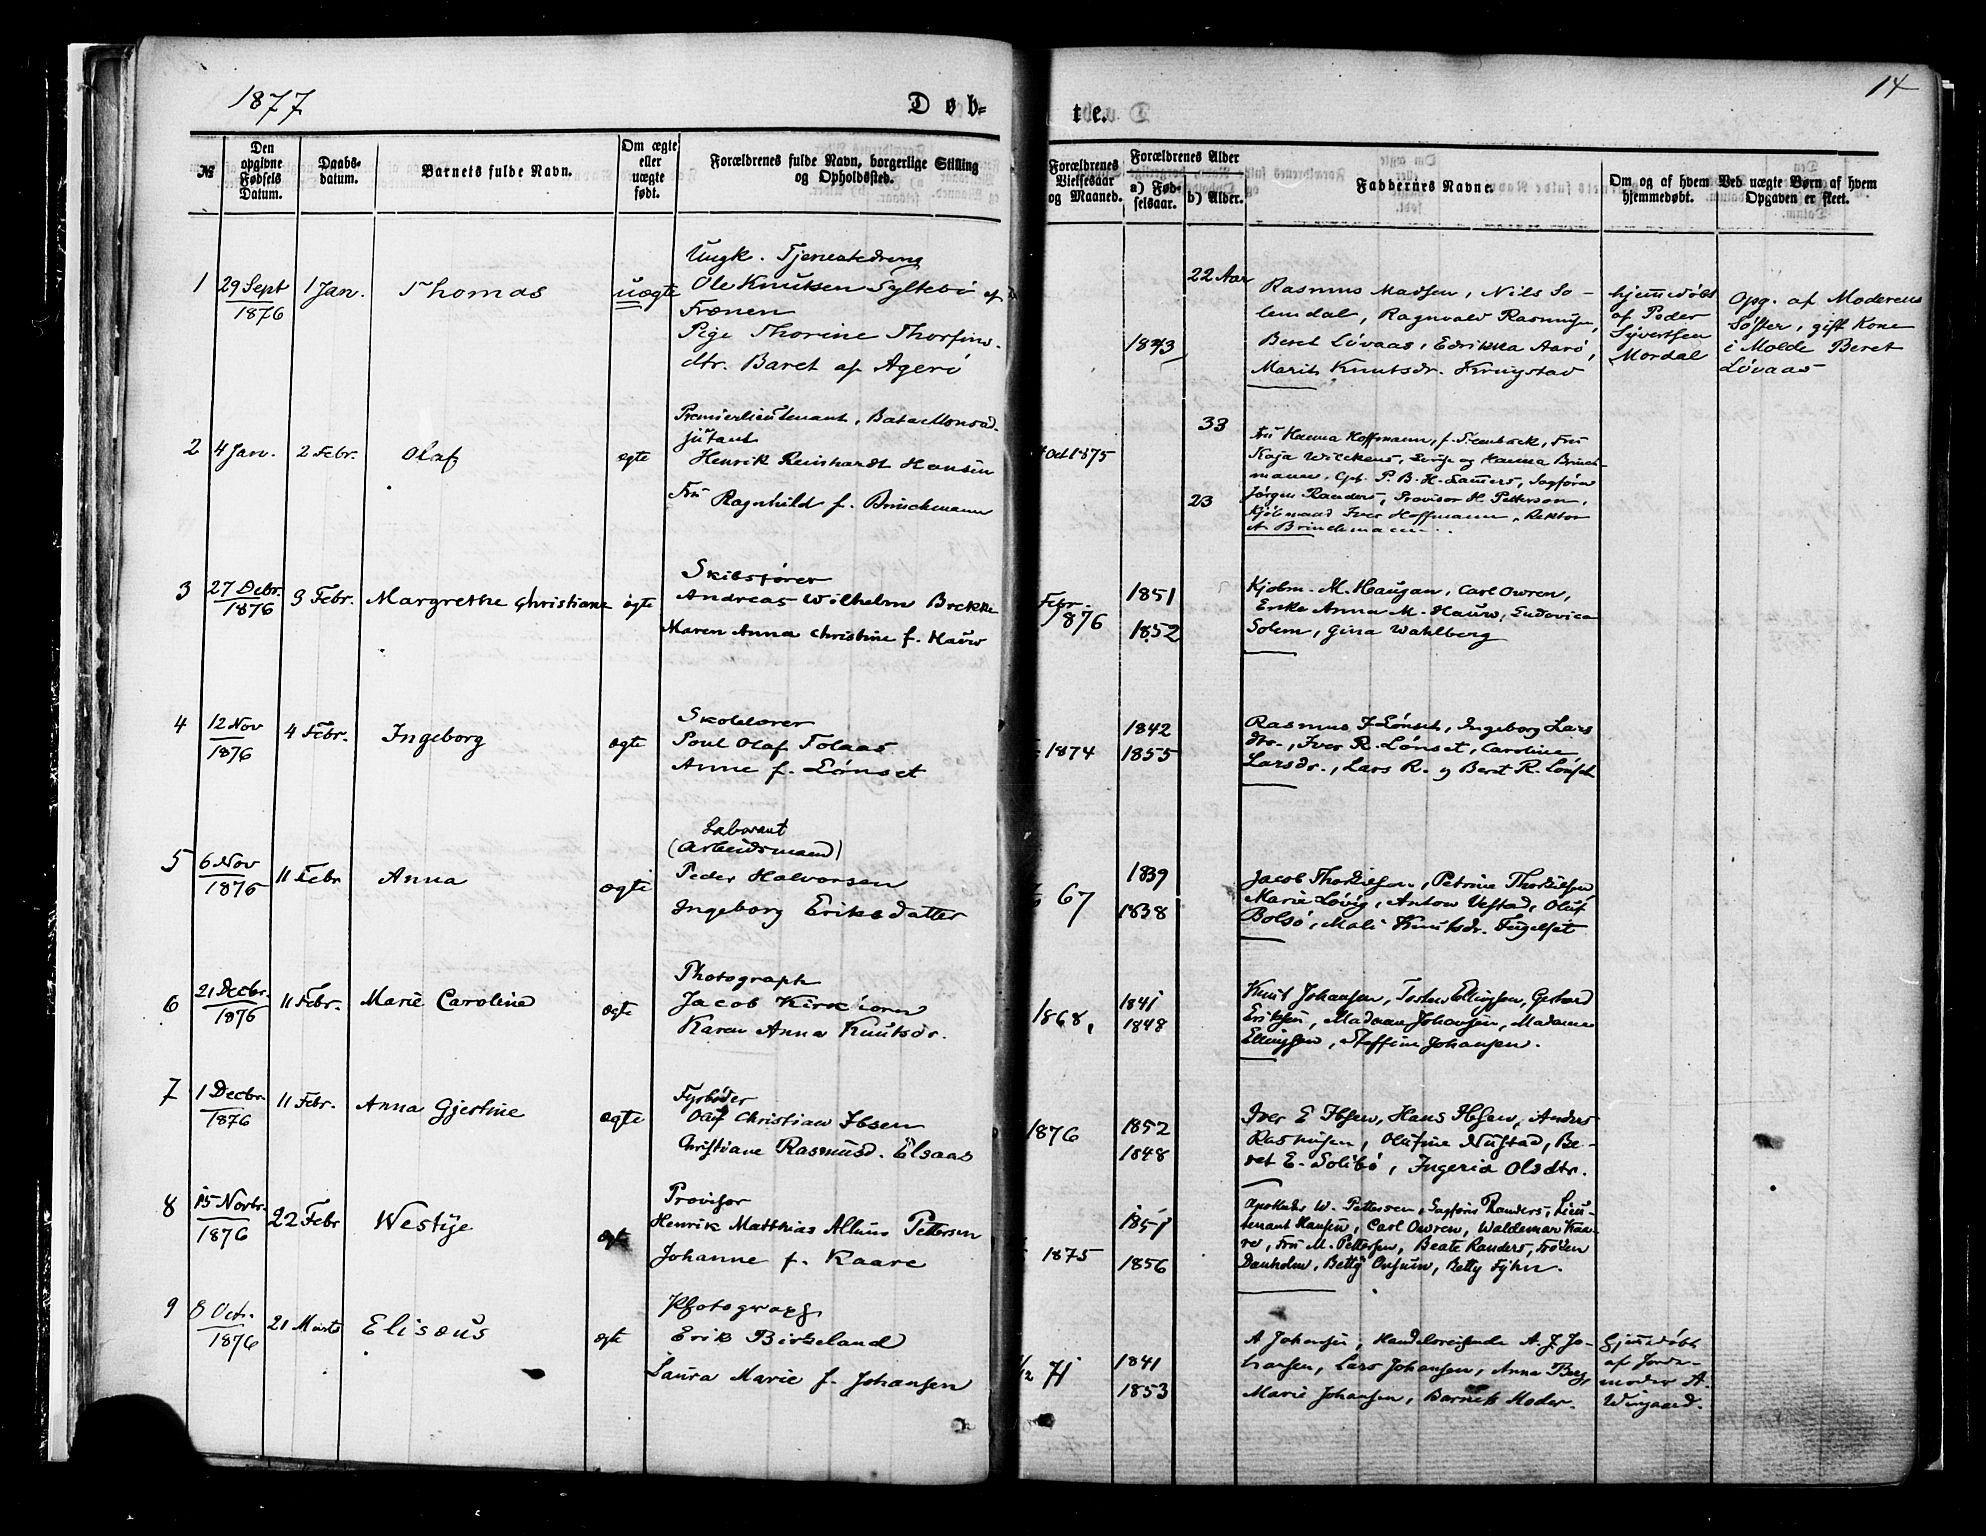 1877
Døb-
te.
14
№
Den opgivne Fødsels Datum.
Daabs-datum.
Barnets fulde Navn.
Om ægte eller uægte født.
Forældrenes fulde Navn, borgerlige Stilling og Opholdssted.
Forældrenes Vielsesaar og Maaned.
Forældrenes Alder
a) Fødselsaar.
b) Alder.
Faddernes Navne.
Om og af hvem hjemmedøbt.
Ved uægte Børn af hvem Opgaven er skeet.
1 29 Sept 1876 1 Jan. Thomas uægte
Ungk. Tjenestedreng
Ole Knutsen Syltebö af
Frænen
Pige Thorine Thorfins-
dtr. Baret af Agerö
22 Aar
1843
Rasmus Madsen, Nils So-
lemdal, Ragnvald Rasmusen,
Beret Lövaas, Edrikka Aarö,
Marit Knutsdr. Kringstad
hjemmedöbt
af Peder
Syvertsen
Mordal
Opg. af Moderens
Söster, gift Kone
i Molde Beret
Lövaas
2 4 Jan. 2 Febr. Olaf ægte
Premierlieutenant, Bataillonsad-
jutant
Henrik Reinhardt Hansen
Fru Ragnhild f. Brinchmann
Oct 1875
33
23
Fru Hanna Hoffmann, f. Stenbock, Fru
Kaja Wilckens, og Hanna Brinch-
mann, Cpt. P. B. H. Sagförer
Jörgen Randers, Provisor H. Petterson,
Kjöbmand Iver Hoffmann, Rektor
A. Brinchmann.
3 27 Debr. 1876 9 Febr. Margrethe Christiane ægte
Skibsförer
Andreas Wilhelm Brekke
Maren Anna Christine f. Hauw
Febr. 1876
1851
1852
Kjøbm. M. Haugan, Carl Owren,
Enke Anna M. Hauw, Ludovica
Solem, Gina Wahlberg
4 12 Nov 1876 4 Febr. Ingeborg ægte
Skolelærer
Poul Olaf Tolaas
Anne f. Lönset
1874
1842
1855
Rasmus I. Lönset, Ingeborg Lars
dtr., Iver R. Lönset, Caroline
Larsdr., Lars R. og Beret R. Lönset
5 6 Nov 1876 11 Febr Anna ægte
Laborant
(Arbeidsmand)
Peder Halvorsen
Ingeborg Eriksdatter
67
1839
1838
Jacob Thorkilsen, Petrine Thorkilsen
Marie Lovig, Anton Vestad, Oluf
Bolsö, Mali Knutsdr. Fugelset
6 21 Decbr. 1876 11 Febr. Marie Caroline ægte
Photograph
Jacob Kirkhorn
Karen Anna Knutsdr.
1868,
1841
1848
Knut Johansen, Torsten Ellingsen, Gerhard
Eriksen, Madame Johansen, Madame
Ellingsen, Steffine Johansen.
7 1 Decbr. 1876 11 Febr. Anna Gjertine ægte
Fyrböder
Olaf Christian Ibsen
Christiane Rasmusd. Elsaas
1876
1852
1848
Iver E. Ibsen, Hans Ibsen, Anders
Rasmusen, Olufine Nustad, Be-
ret E. Solibö, Ingerid Olsdtr.
8 15 Novbr. 1876 22 Febr Westye ægte
Provisor
Henrik Matthias Pettersen
Johanne f. Kaare
1875
1851
1856
Apotheker W. Pettersen, Sagförer Randers, Lieu-
tenant Hansen, Carl Owren, Waldemar Kaa-
re, Fru M. Pettersen, Beate Randers, Fröken
Danholm, Betty Onsum, Betty Fyhn.
9 8 Octr. 1876 21 Marts Elisæus ægte
Photograph
Erik Birkeland
Laura Marie f. Johansen
71
1841
1853
A Johansen, Handelsreisende A. J. Jo-
hansen, Lars Johansen, Anna Berg,
Marie Johansen, Barnets Moder.
Hjemmedöbt
af Jorde-
moder A.
Wingaard.